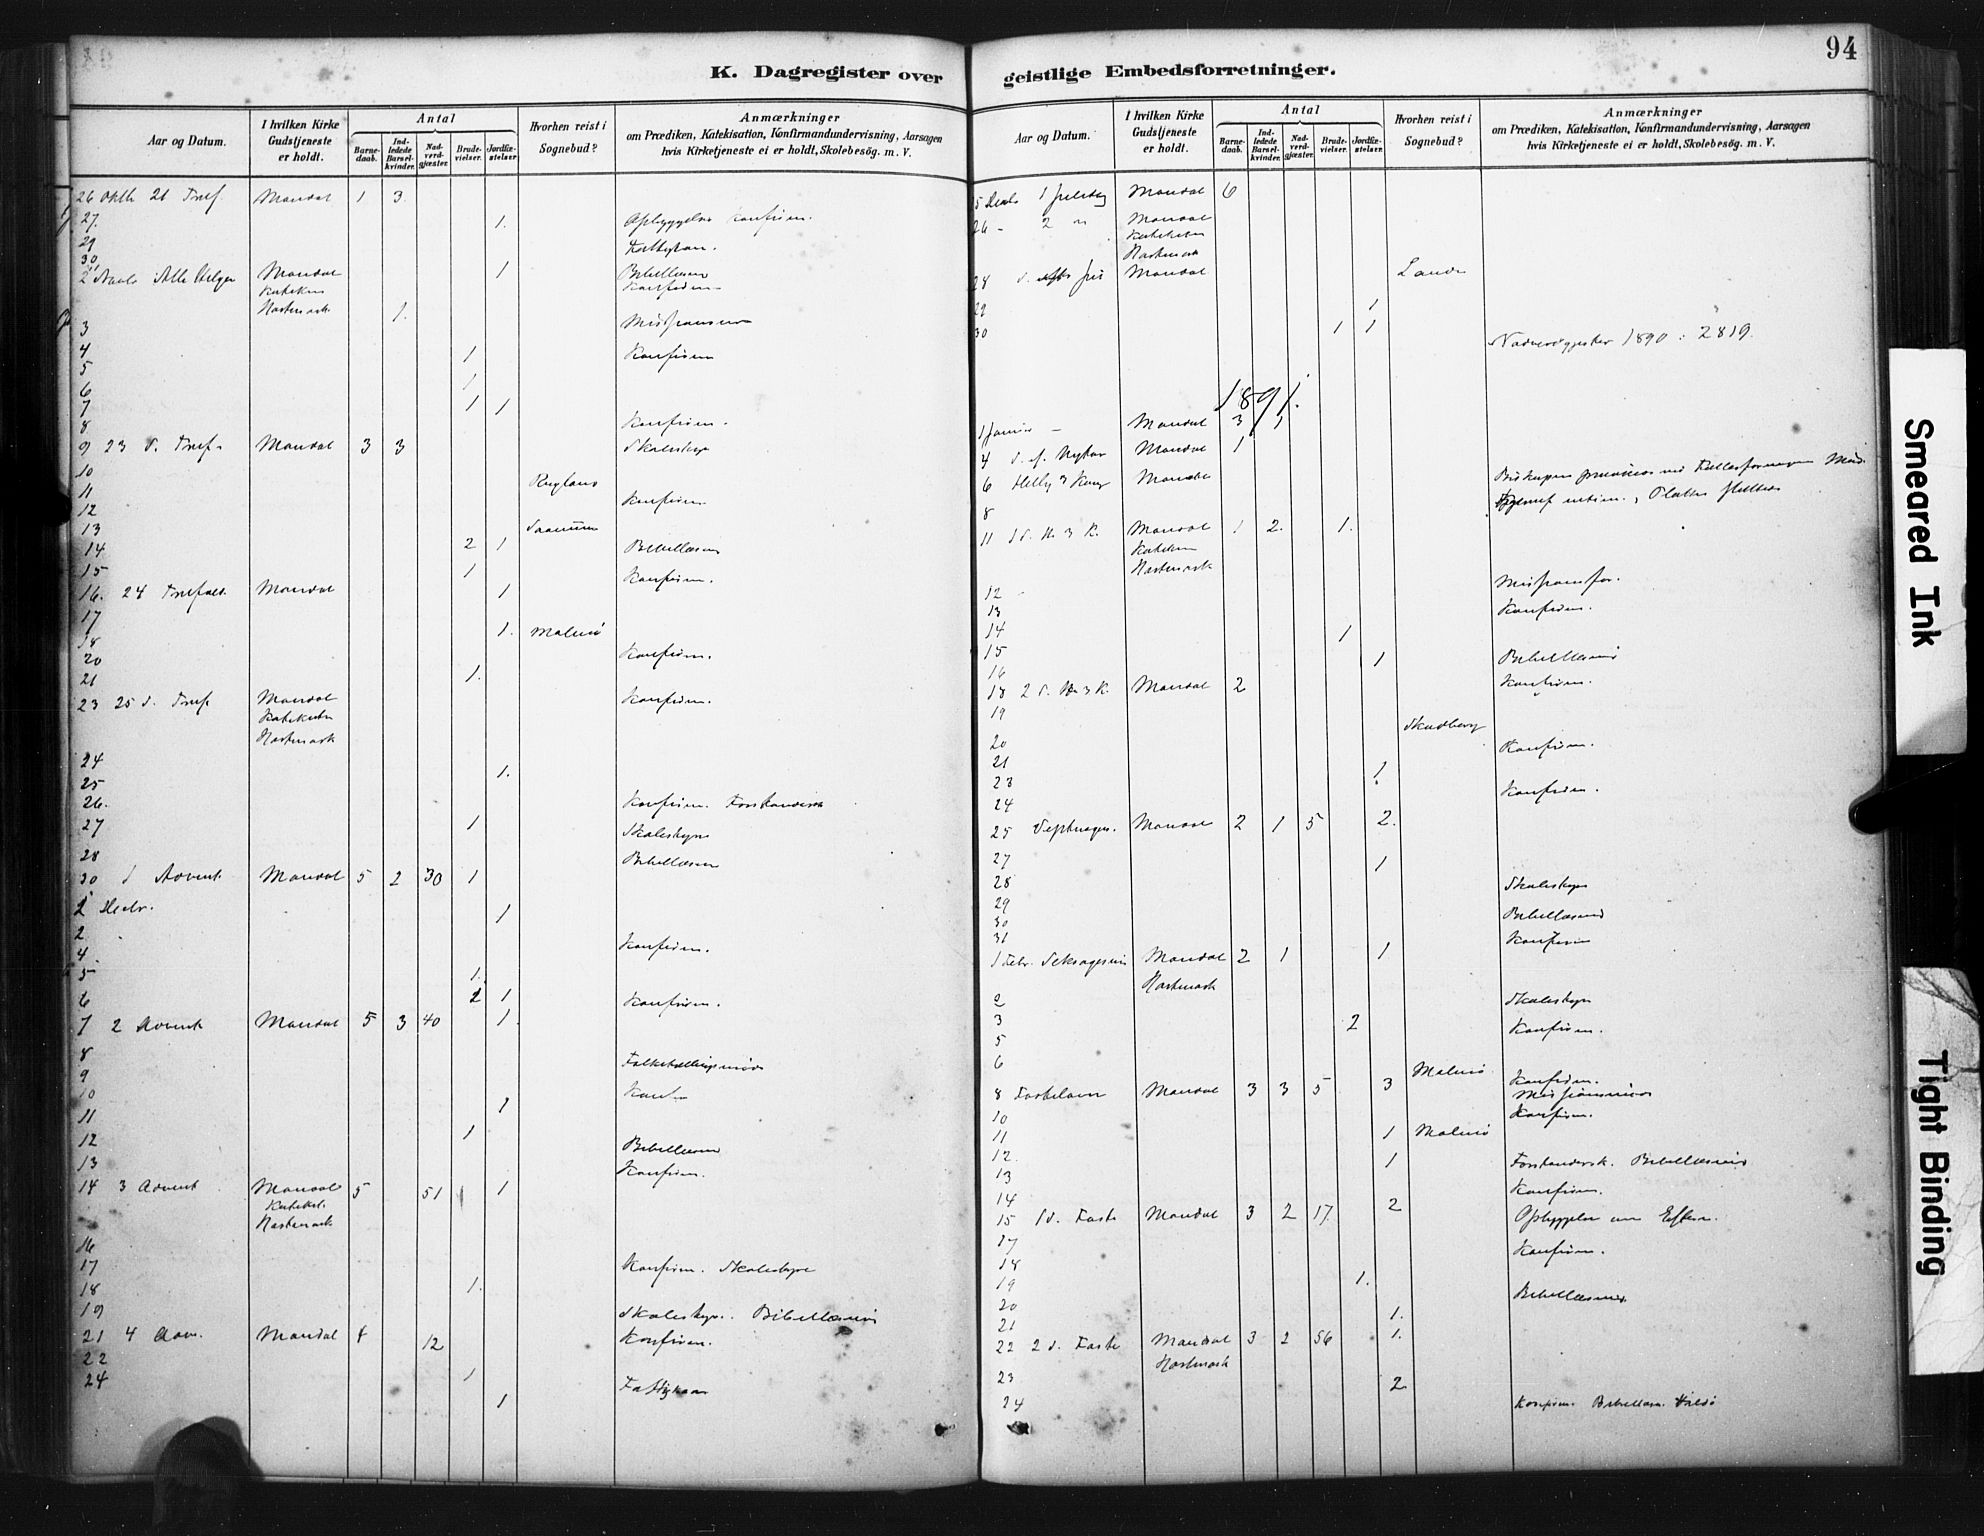 K. Dagregister over geistlige Embedsforretninger.
94
Aar og Datum.
I hvilken Kirke Gudstjeneste er holdt.
Antal
Barnedaab.
Indledede Barselkvinder.
Nadverdgjæster.
Brudevielser.
Jordfæstelser.
Hvorhen reist i Sognebud?
Anmærkninger
om Prædiken, Katekisation, Konfirmandundervisning, Aarsagen
hvis Kirketjeneste ei er holdt, Skolebesög. m. V.
26 Oktb 21 Tref. Mandal 1 3
27. 1. Opbyggelse Konfirm.
29
30
2 Alle Helgen Mandal 1
Hartmark 1.
3
4 1 Konfirm
5 1
6
7 1 1
8 Konfirm.
9 23 S. Tref. Mandal 3 3 Skolestyre
10
11
12 Konfirm
13
14 2 1 Bibellæsn
15 1 Konfirm.
16. 24 Trefold. Mandal 1
17
18 1. Malmö
20 Konfirm.
21 1.
23 25 S. Tref Mandal Konfirm.
Kateketen
Hartmark
24
25 1.
26. Konfirm. Forstandersk
27 1 Skolestyre
28 Bibellæsn
30 1 Advent Mandal 5 2 30 1
1 Decbr. 1
2
4 Konfirm.
5 1.
6 2 1 Konfirm.
7 2 Advent Mandal 5 3 40 1.
8
9
10 1
11
12 1 Bibellæsn
13 Konfirm.
14 3 Advent Mandal 5 51 1
Kateket.
Hartmark
16
17 Konfirm. Skolestyre
18 1.
19 Skolestyre. Bibellæsning
21 4 Adv. Mandal 4 12 Konfirm.
22
24 1
1
Aar og Datum.
I hvilken Kirke Gudstjeneste er holdt.
Antal
Barnedaab.
Indledede Barselkvinder.
Nadverdgjæster.
Brudevielser.
Jordfæstelser.
Hvorhen reist i Sognebud?
Anmærkninger
om Prædiken, Katekisation, Konfirmandundervisning, Aarsagen
hvis Kirketjeneste ei er holdt, Skolebesög. m. V.
1 Juledag Mandal 6
26 - 2 Mandal
Kateketen
Hartmark
28 Mandal
29 1
30 1 1
Nadverdgjester 1890: 2819.
1891.
1 Januar - Mandal 3 1
4 S. ef. Nytaar Mandal 1
6 Hellg 3 Kong Mandal
8
11 1 S. H. 3 K. Mandal 1 2. 1.
Kateketen
Hartmark
12
13 Konfirm.
14 1
15 1 Bibellæsning
16
18 2 S. H. 3 K. Mandal 2 Konfirm.
19 Skadberg
20 Konfirm.
21 1
23
24 Konfirm.
25 Septuages. Mandal 2 1 5 2.
27 1
28 Skolestyre
29
30 Bibellæsning
31 Konfirm
1 Febr. Seksagesima Mandal 2 1 1
Hartmark
2 Skolestyre
3 2 Konfirm.
5
6 Malmö
8 Fastelavn Mandal 3 3 5 3 Konfirm.
10 Konfirm.
11 1 Malmö
12
13 1 Forstandersk. Bibellæsning
14 Konfirm.
15 1 S. Faste Mandal 3 2 17 2
17 Konfirm.
18
19 1.
20 Bibellæsning
21 1.
22 2 S. Faste Mandal 3 2 56 1.
Hartmark
23 2
24 Konfirm. Bibellæsn.
Smeared Ink
Tight Binding